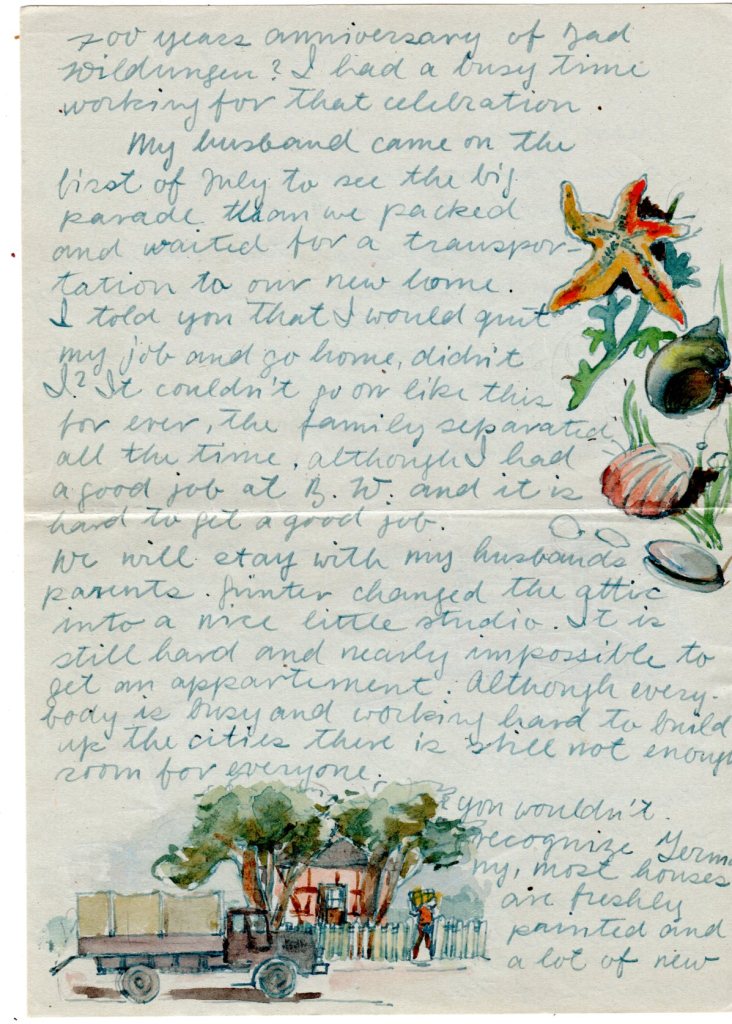 700 years anniversary of Bad
Wildungen? I had a busy time
working for that celebration.
My husband came on the
first of July to see the big
parade than we packed
and waited for a transpor-
tation to our new home.
I told you that I would quit
my job and go home, didn't
I? It couldn't go on like this
for ever, the family separated
all the time, although I had
a good job at B. W. and it is
hard to get a good job.
We will stay with my husbands
parents. Günter changed the attic
into a nice little studio. It is
still hard and nearly impossible to
get an appartement. Although every-
body is busy and working hard to build
up the cities there is still not enough
room for everyone.
You wouldn't
recognize Germa
ny, most houses
are freshly
painted and
a lot of new